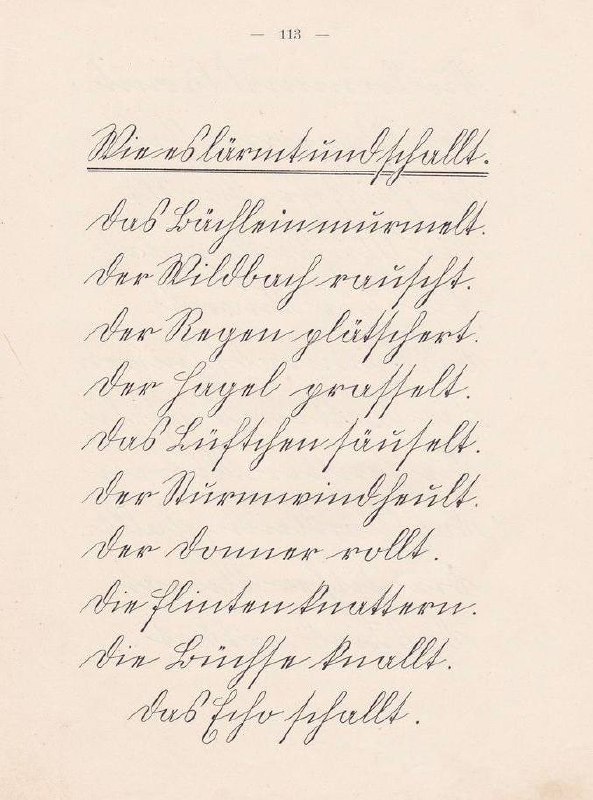 — 113 —
Wie es lärmt und schallt.
Das Bächlein murmelt.
Der Wildbach rauscht.
Der Regen plätschert.
Der Hagel prasselt.
Das Lüftchen säuselt.
Der Sturmwind heult.
Der Donner rollt.
Die Flinten knattern.
Die Büchse knallt.
Das Echo schallt.